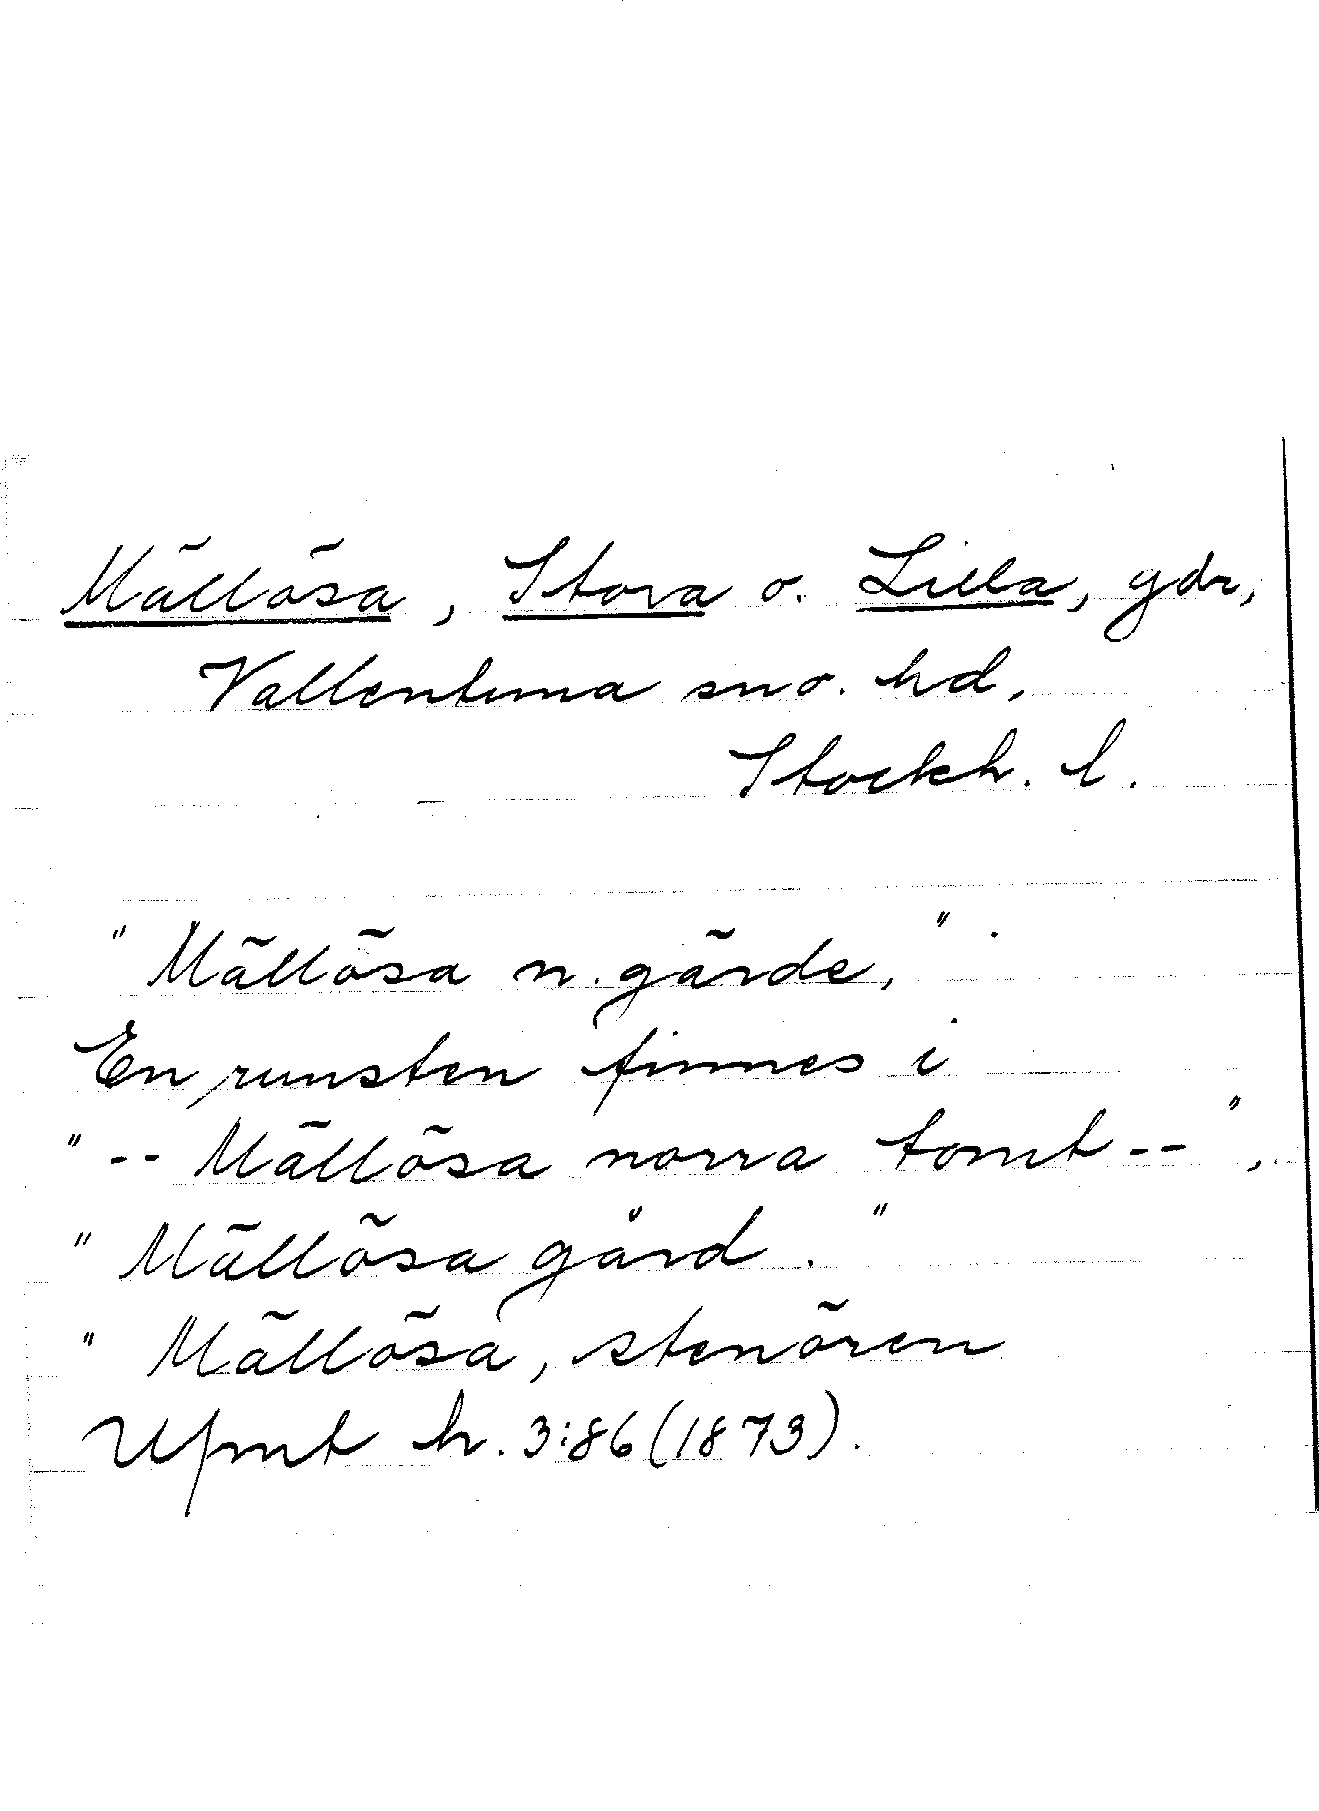 Mällösa, Stora o. Lilla, gdr,
Vallentuna sn o. hd,
Stockh. l.
"Mällösa n. gärde,".
En runsten finnes i
"-- Mällösa norra tomt --",
"Mällösa gård."
"Mällösa, stenören
Upmt h. 3:86 (1873).